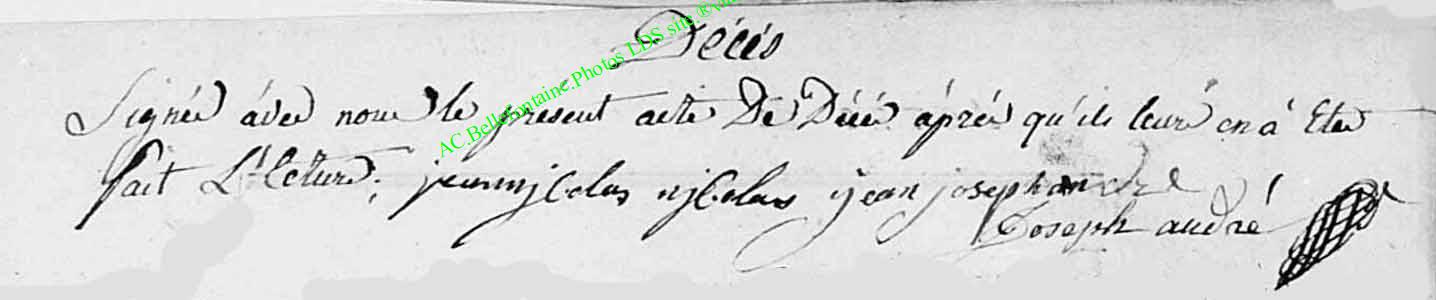 Décés
Signée ávec nous le present acte De Décé áprés qu'ils leur en á Eté
fait L'lecture; jeannicolas nicolas jean joseph andre
Joseph andré
AC.Bellefontaine.Photos LDS site